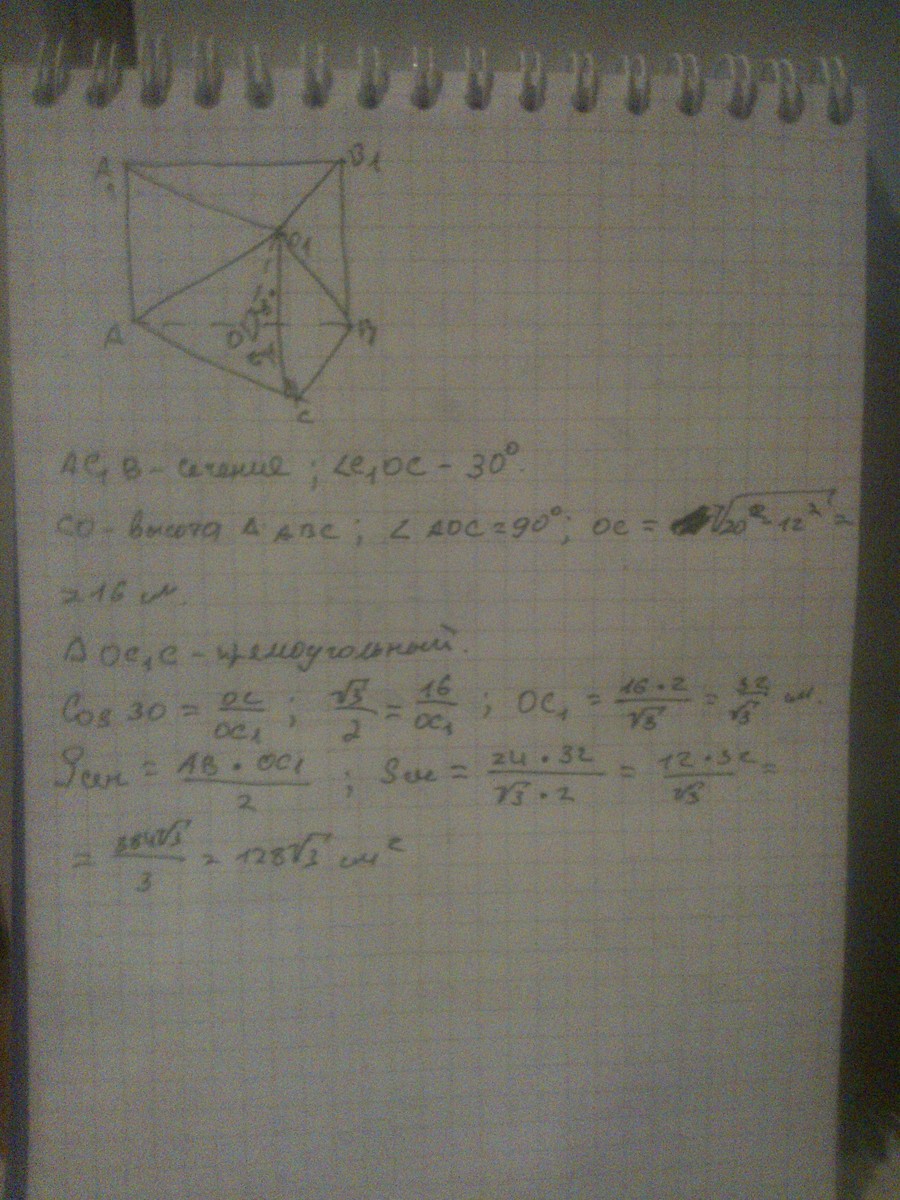 A₁ B₁
C₁
A O 30° B
C
AC₁B - сечение ; ∠C₁OC - 30°.
CO - высота Δ ABC ; ∠ AOC = 90° ; OC = √20² - 12² =
= 16 см.
Δ OC₁C - прямоугольный.
Cos 30 = OC/OC₁ ; √3/2 = 16/OC₁ ; OC₁ = 16·2/√3 = 32/√3 см.
Sсеч = AB · OC₁/2 ; Sсеч = 24 · 32/√3 · 2 = 12 · 32/√3 =
= 384√3/3 = 128√3 см²